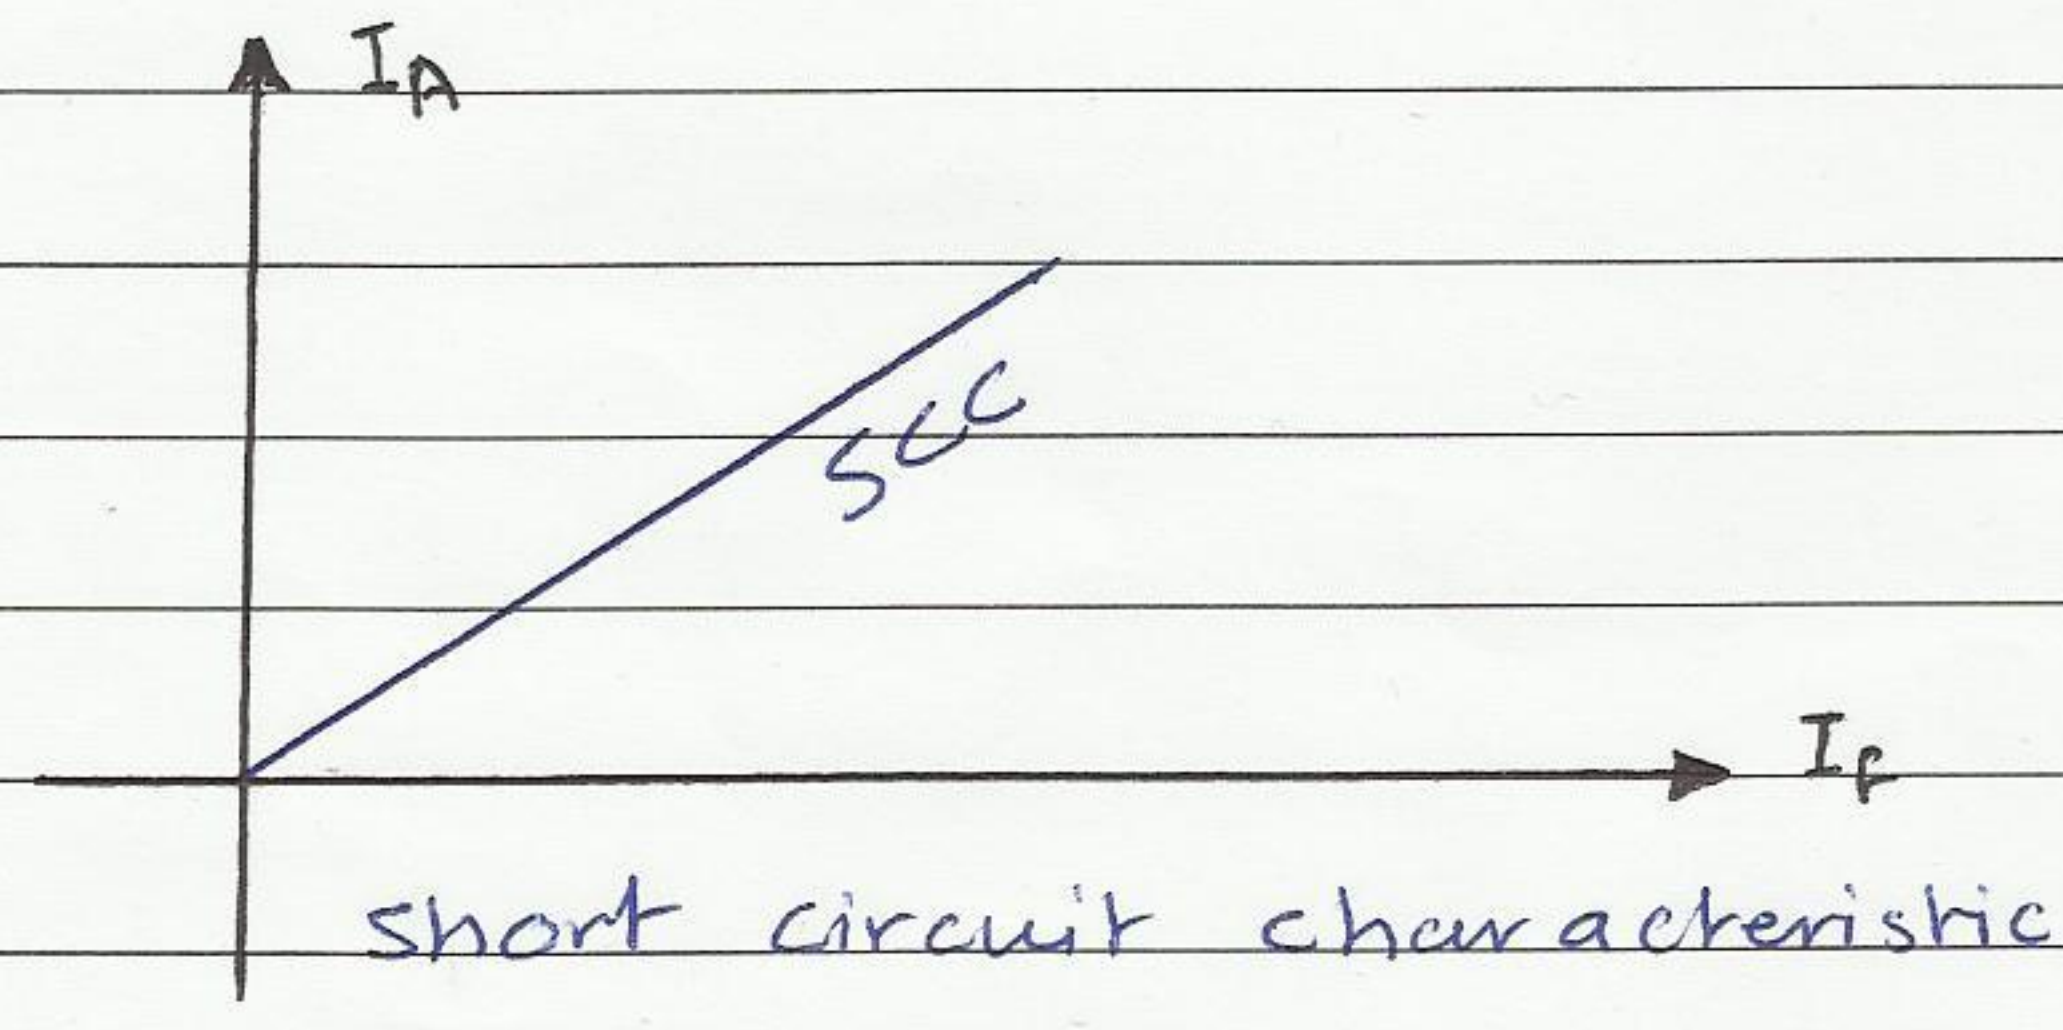 I_A
SCC
I_F
short circuit characteristic